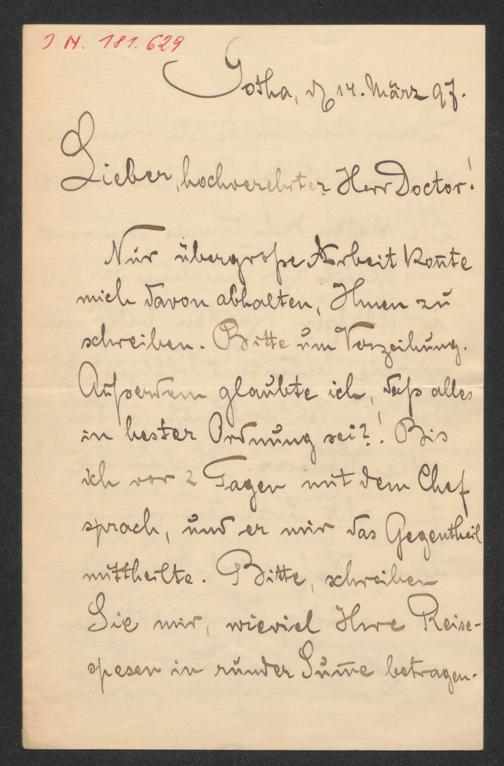 I N. 181.629
Gotha, d 14. März 97.
Lieber, hochverehrter Herr Doctor!
Nur übergroße Arbeit kon̄te
mich davon abhalten, Ihnen zu
schreiben. Bitte um Verzeihung.
Außerdem glaubte ich, daß alles
in bester Ordnung sei?! Bis
ich vor 2 Tagen mit dem Chef
sprach, und er mir das Gegentheil
mittheilte. Bitte, schreiben
Sie mir, wieviel Ihre Reise-
spesen in runder Sum̄e betragen.